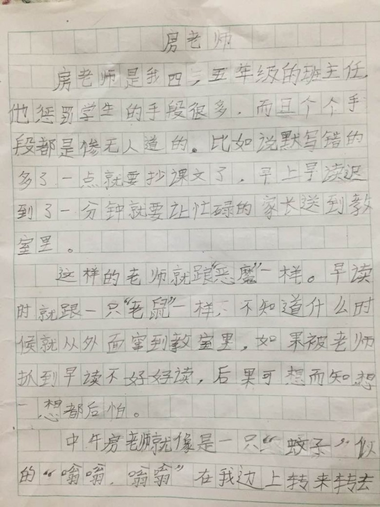 房老师
房老师是我四、五年级的班主任,
他惩罚学生的手段很多,而且个个手
段都是惨无人道的。比如说默写错的
多了一点就要抄课文了,早上早读迟
到了一分钟就要让忙碌的家长送到教
室里。
这样的老师就跟“恶魔”一样。早读
时就跟一只“老鼠”一样,不知道什么时
候就从外面窜到教室里,如果被老师
抓到早读不好好读,后果可想而知想
想都后怕。
中午房老师就像是一只“蚊子”似
的“嗡嗡,嗡嗡”在我边上转来转去